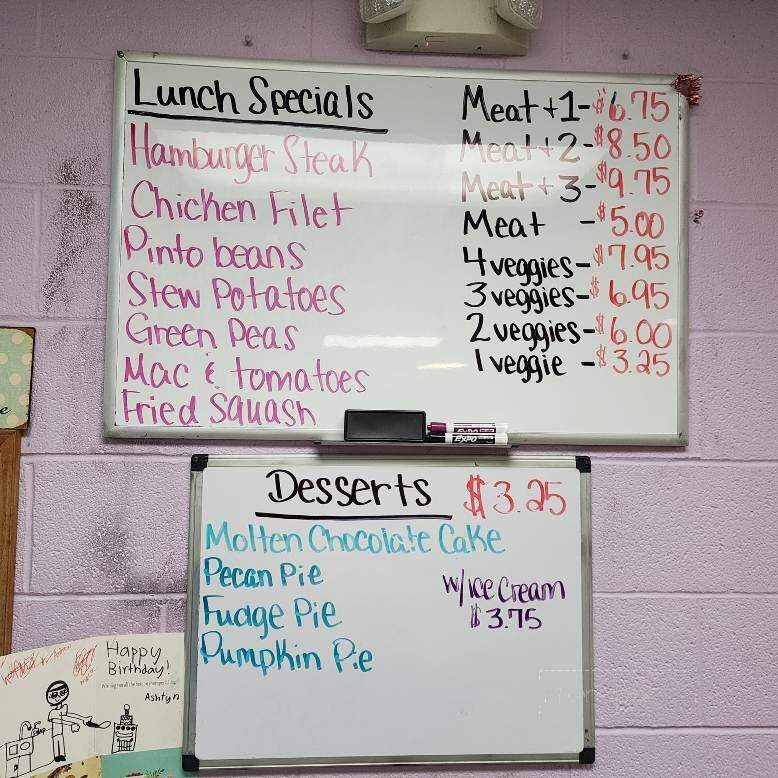 Lunch Specials
Hamburger Steak
Chicken Filet
Pinto beans
Stew Potatoes
Green Peas
Mac & tomatoes
Fried Squash
Meat +1-$6.75
Meat +2-$8.50
Meat +3-$9.75
Meat -$5.00
4 veggies-$7.95
3 veggies-$6.95
2 veggies-$6.00
1 veggie -$3.25
EXPO
EXPO
Desserts $3.25
Molten Chocolate Cake
Pecan Pie
Fudge Pie
Pumpkin Pie
w/ice cream
$3.75
Happy
Birthday!
Ashtyn